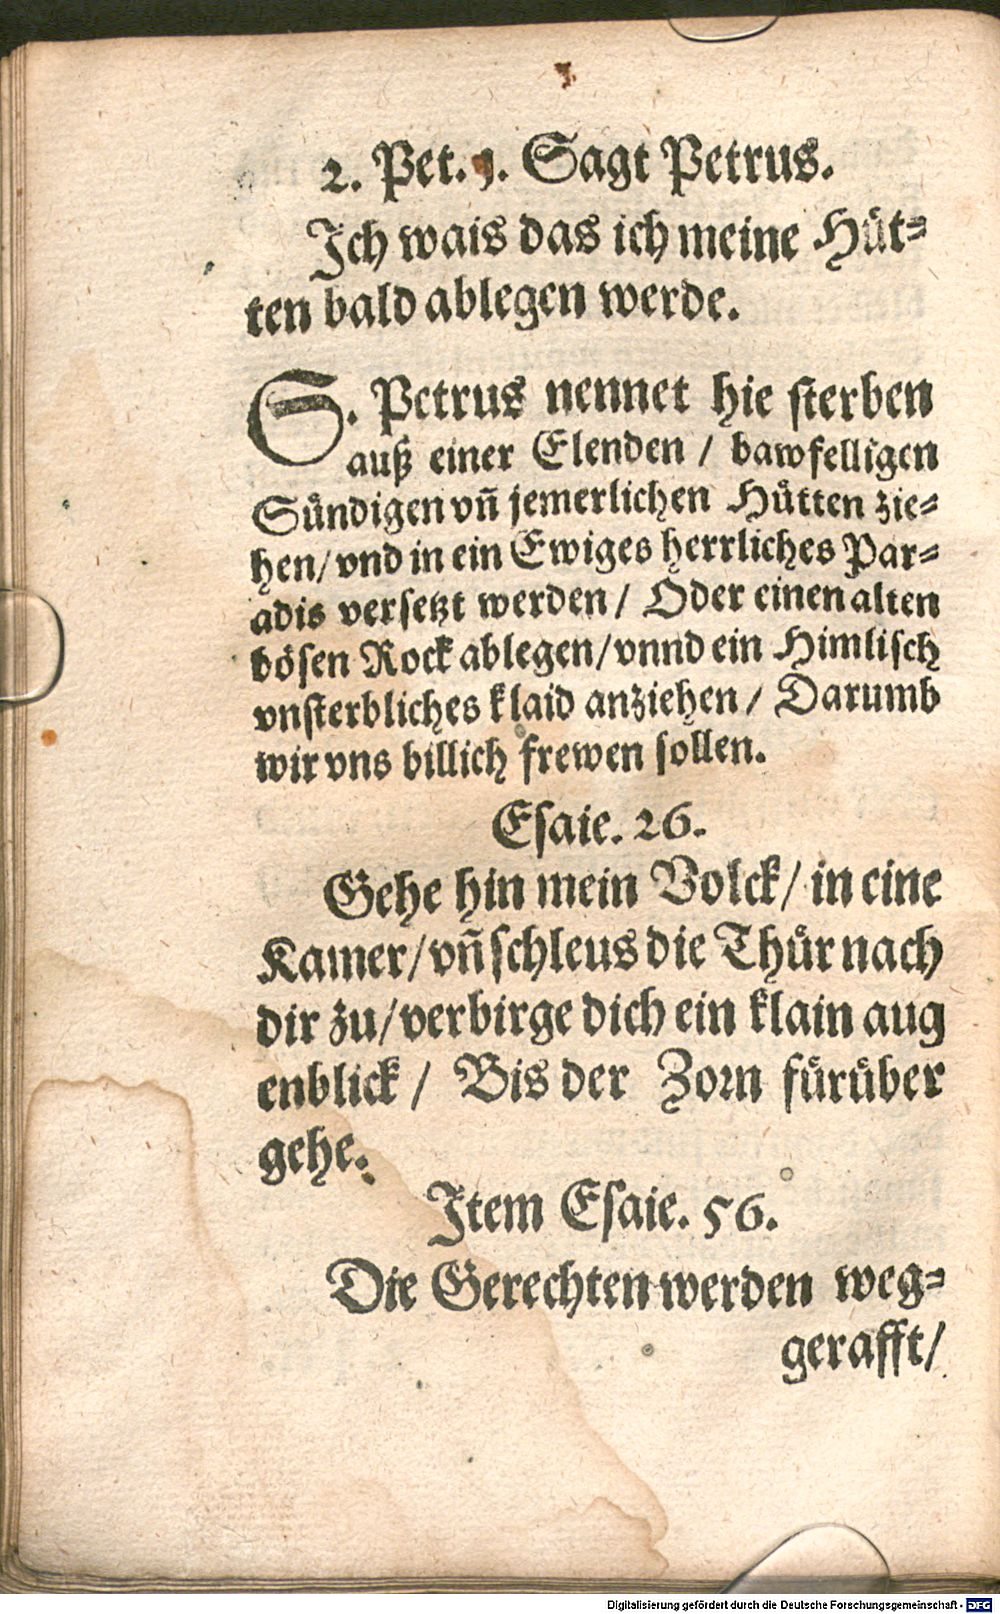 2. Pet. 1. Sagt Petrus.
Ich wais das ich meine Hüt⸗
ten bald ablegen werde.
S. Petrus nennet hie sterben
auß einer Elenden / bawfelligen
Sündigen vñ jemerlichen Hütten zie⸗
hen/ vnd in ein Ewiges herrliches Par⸗
adis versetzt werden / Oder einen alten
bösen Rock ablegen/ vnnd ein Himlisch
vnsterbliches klaid anziehen / Darumb
wir vns billich frewen sollen.
Esaie. 26.
Gehe hin mein Volck/ in eine
Kamer/ vñ schleus die Thür nach
dir zu/ verbirge dich ein klain aug
enblick / Bis der Zorn fürüber
gehe.
Item Esaie. 56.
Die Gerechten werden weg⸗
gerafft/
Digitalisierung gefördert durch die Deutsche Forschungsgemeinschaft - DFG